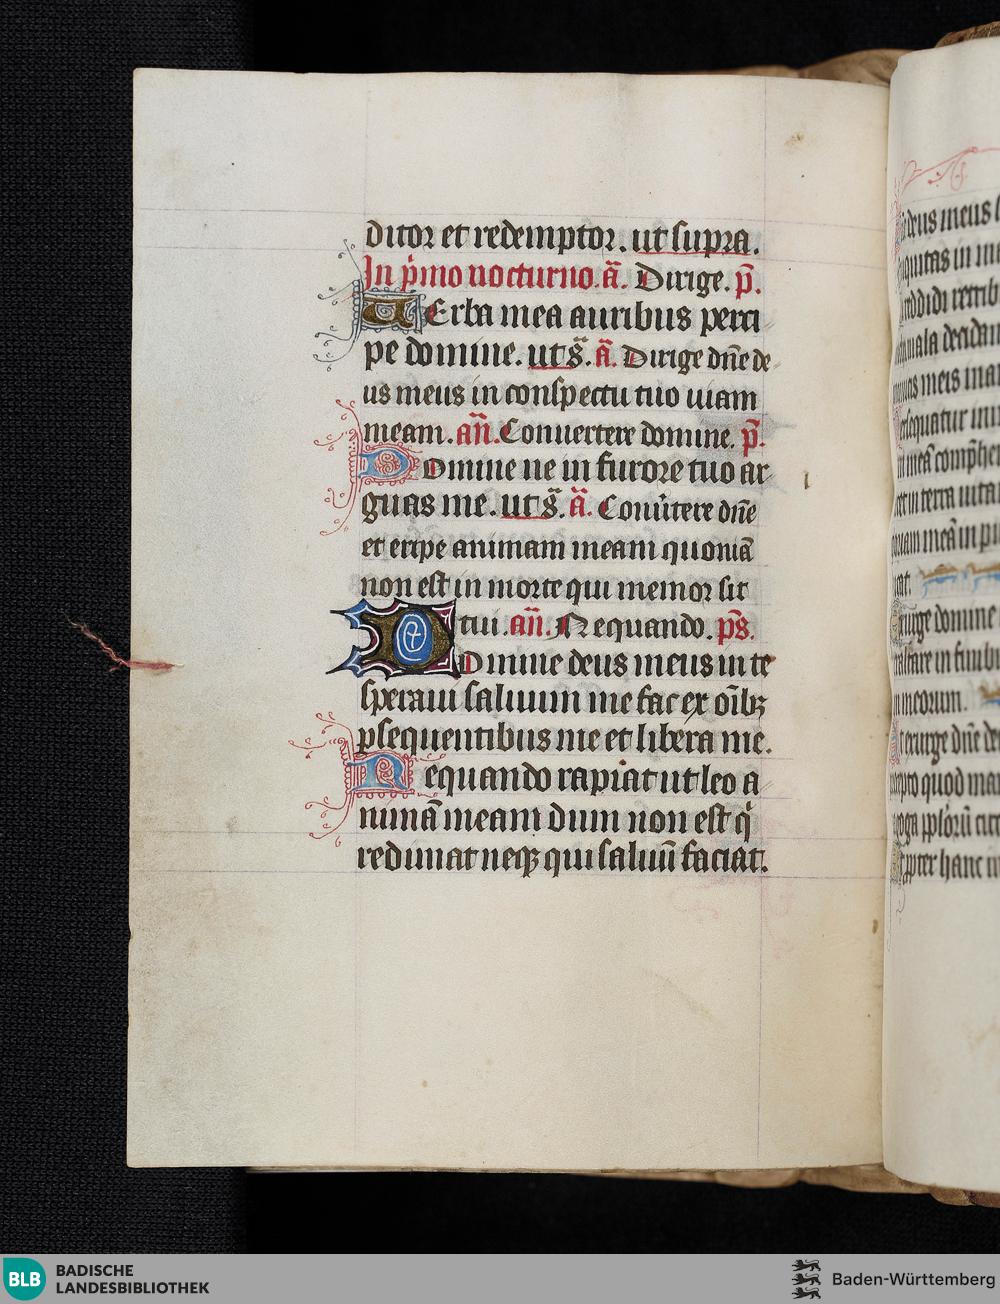 ditor et redemptor. ut supra.
In p̄mo nocturno. ā. Dirige. p̄.
UErba mea auribus perci
pe domine. ut s̄. ā. Dirige dn̄e de
us meus in conspectu tuo uiam
meam. an̄. Conuertere domine. p̄.
Domine ne in furore tuo ar
guas me. ut s̄. ā. Conūtere dn̄e
et eripe animam meam quoniā
non est in morte qui memor sit
tui. an̄. Nequando. ps̄.
Domine deus meus in te
speraui saluum me fac ex oībꝫ
ꝑsequentibus me et libera me.
Nequando rapiat ut leo a
nimā meam dum non est q̇
redimat neqꝫ qui saluū faciat.
deus meus
iquitas in
reddidi
mala decidam
meis
sequatur
meā comp̄he
et in terra uitā
meā in
cat.
urge domine
exaltare in finibu
meorum.
exurge dn̄e de
quod man
ꝓpter hanc in
BLB BADISCHE
LANDESBIBLIOTHEK
Baden-Württemberg